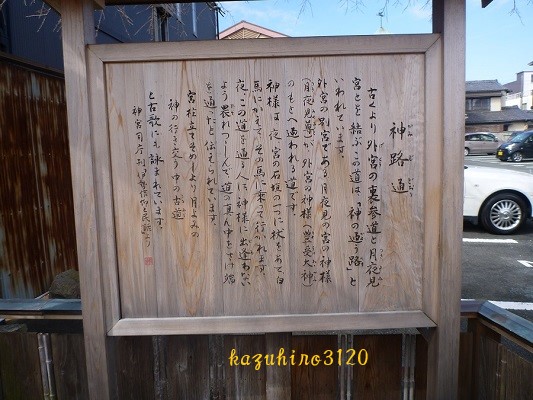 神路通
古くより外宮の裏参道と月夜見
宮とを結ぶこの道は「神の通う路」と
いわれています。
外宮の別宮である月夜見の宮の神様
(月夜見尊)が外宮の神様(豊受大神)
のもとへ通われる道です。
神様は夜、宮の石垣の一つに杖をあて白
馬にかえて、その馬に乗って行かれます。
夜、この道を通る人は神様に出逢わない
よう畏れつつしんで道の真ん中をさけ端
を通ったと伝えられています。
宮柱立てそめしより月よみの
神の行き交う中の古道
と古歌にも詠まれています。
kazuhiro3120